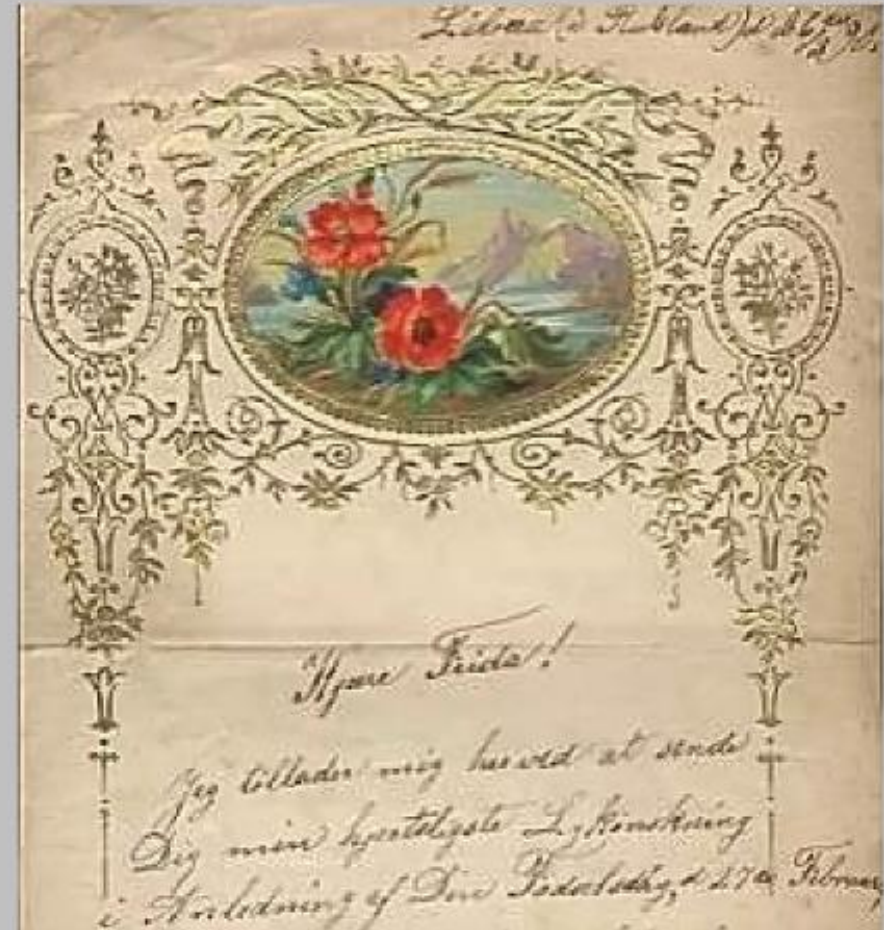 Libau (i Rusland) d
Kjære Frida!
Jeg tillader mig herved at sende
Dig min hjerteligste Lykønskning
i Anledning af Din Fødselsdag, d 27de Februar,